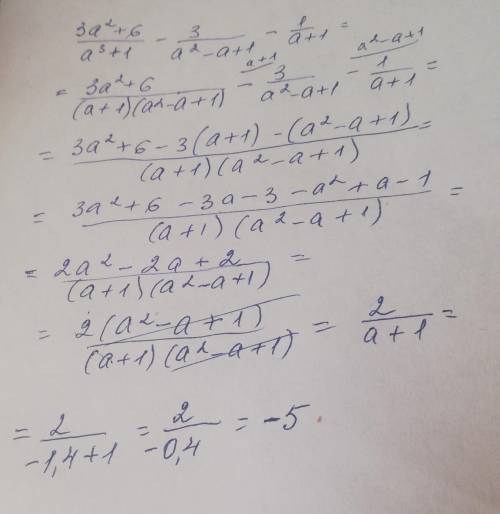 (3a²+6)/(a³+1) - 3/(a²-a+1) - 1/(a+1) =
= (3a²+6)/((a+1)(a²-a+1)) - a+1 3/(a²-a+1) - a²-a+1 1/(a+1) =
= (3a²+6-3(a+1)-(a²-a+1))/((a+1)(a²-a+1)) =
= (3a²+6-3a-3-a²+a-1)/((a+1)(a²-a+1)) =
= (2a²-2a+2)/((a+1)(a²-a+1)) =
= (2(a²-a+1))/((a+1)(a²-a+1)) = 2/(a+1) =
= 2/(-1,4+1) = 2/(-0,4) = -5.